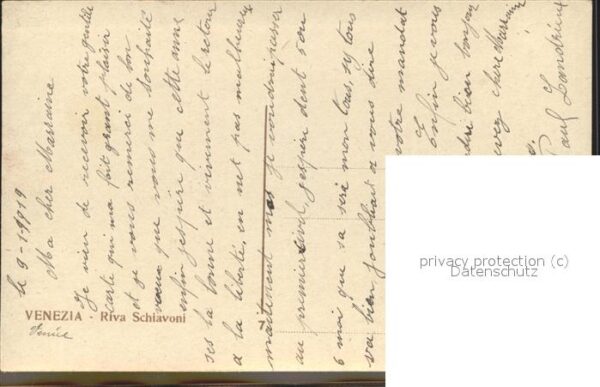 le 9-1-1919
Ma cher Marraine
Je vien de recevoir votre gentille
carte qui ma fait grant plaisir
et je vous remerci de bon
vœux que vous me souhaité
enfin j'espère que cette anne
ses la bonne et vivement le retour
a la liberté, on net pas malheureux
maitenent mes je voudrai passer
au premier civil j'espère dent 5 ou
6 moi que sa sere mon tous, sy tous
va bien j'oubliait a vous dire
votre mandat
Enfin je vous
bien bonjour
cher Marraine
Paul Landrieux
VENEZIA - Riva Schiavoni
Venise
7
privacy protection (c)
Datenschutz